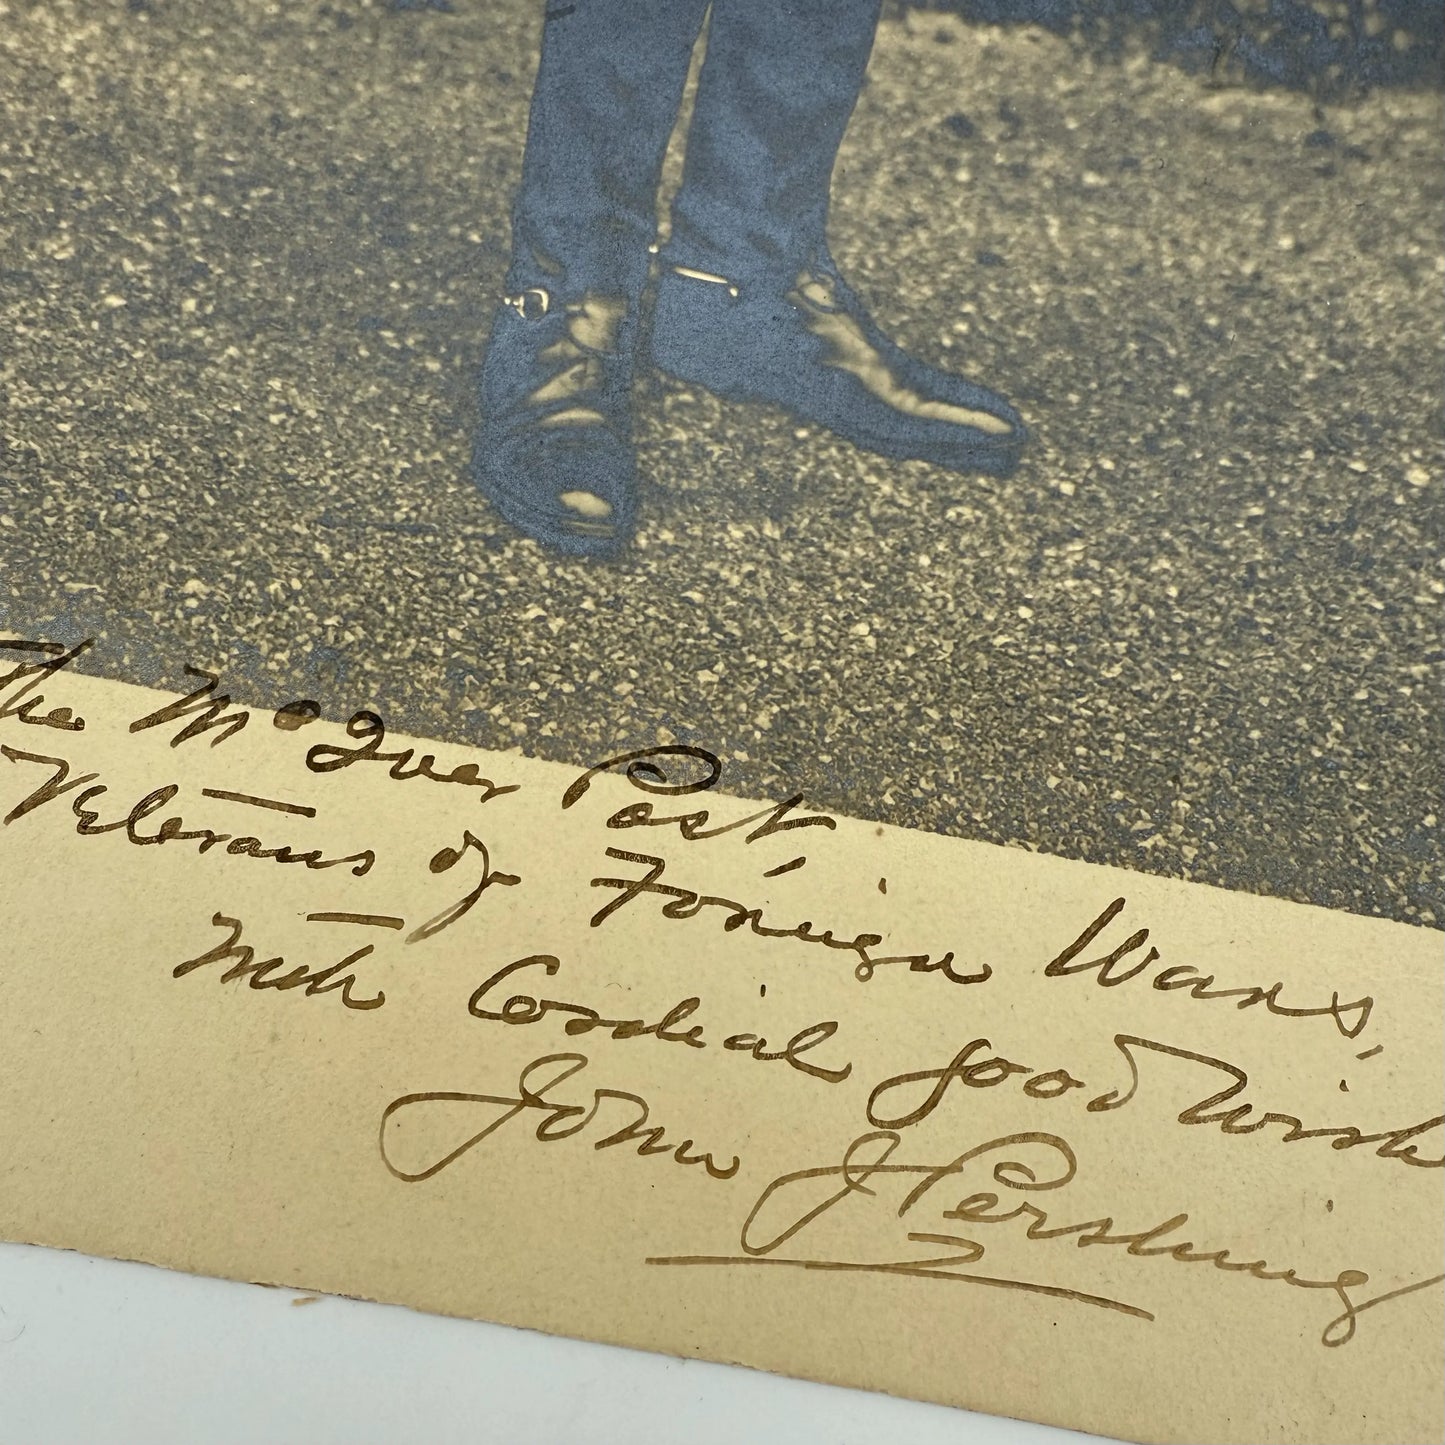 the McIver Post,
Veterans of Foreign Wars,
With Cordial good wish
John J Pershing